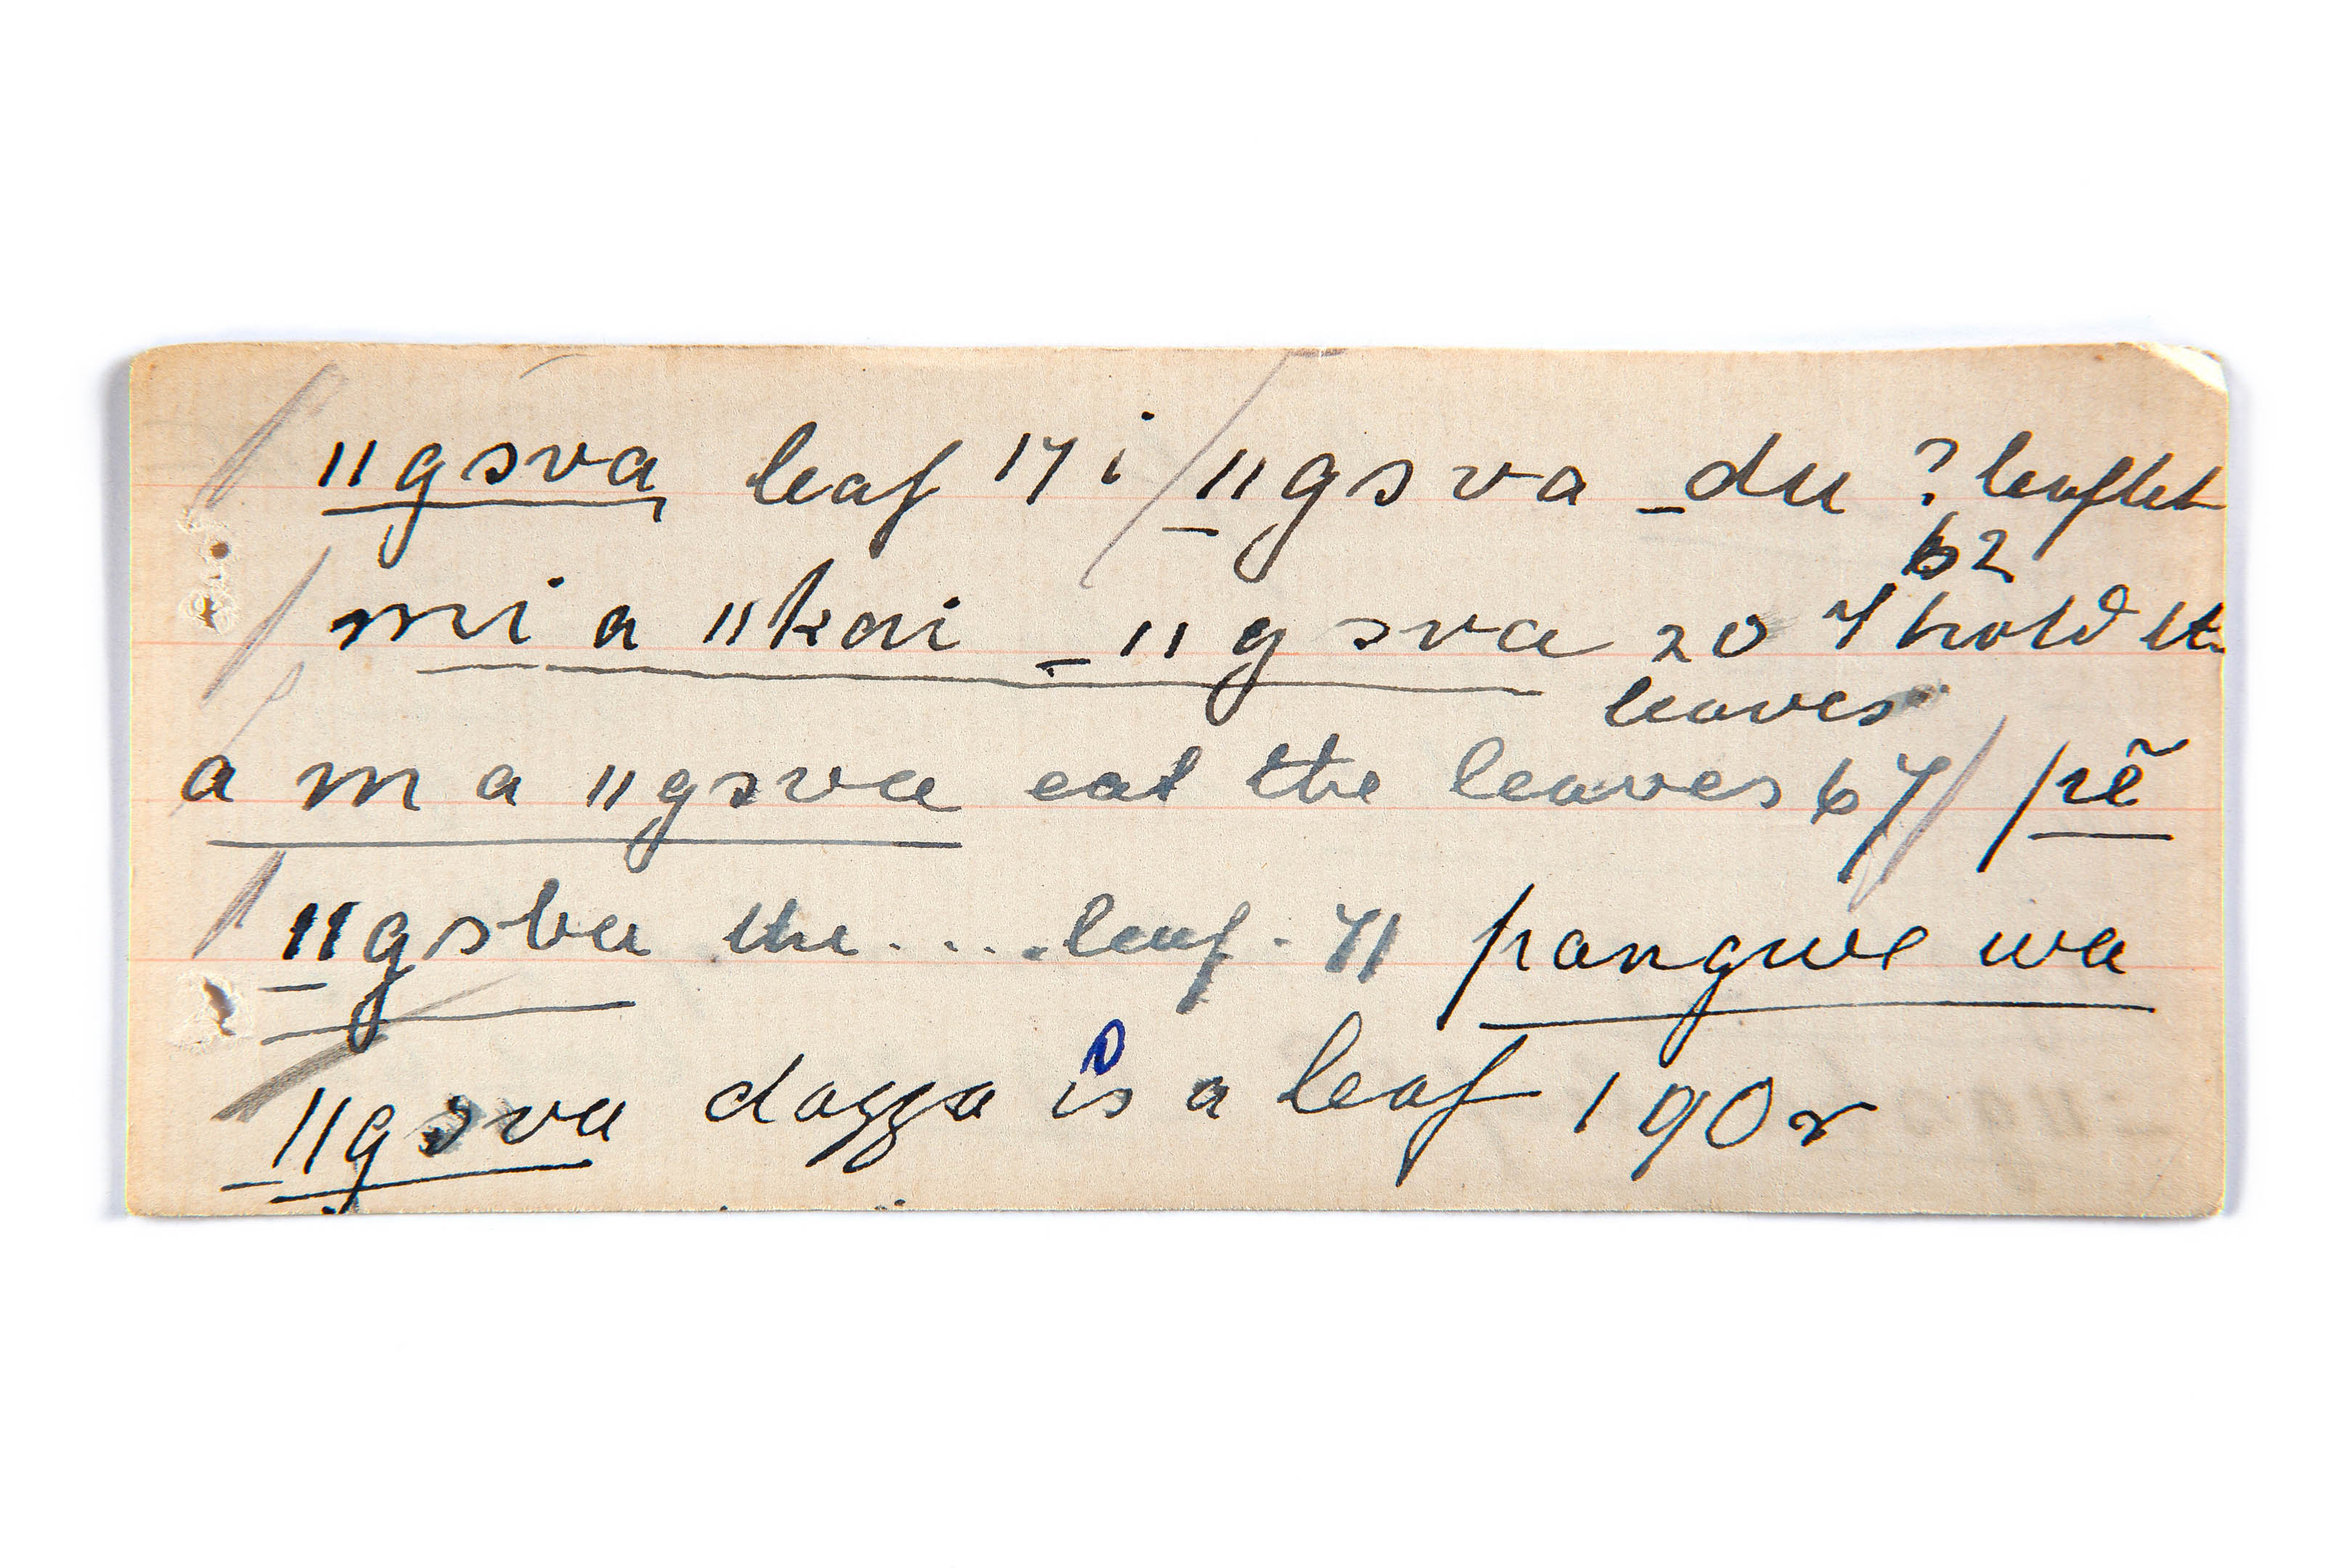 ǁgɔva leaf 17 i / _ǁgɔva _du ? leaflet
62
mi a ǁkai _ǁgɔva 20 I hold the
leaves
a m a ǁgɔva eat the leaves 67 / pẽ
_ǁgɔba the .... leaf. 71 pangwe wa
_ǁgɔva dagga is a leaf 190r